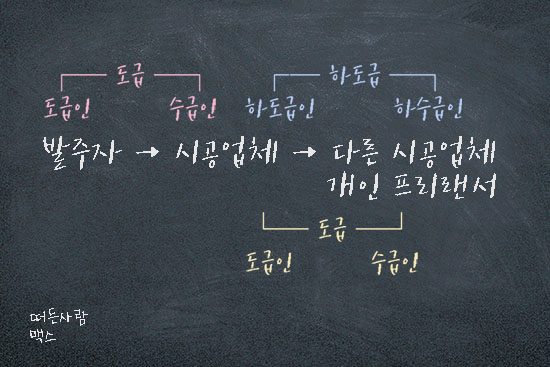 도급 하도급
도급인 수급인 하도급인 하수급인
발주자 → 시공업체 → 다른 시공업체
개인 프리랜서
도급
도급인 수급인
떠든사람
맥스